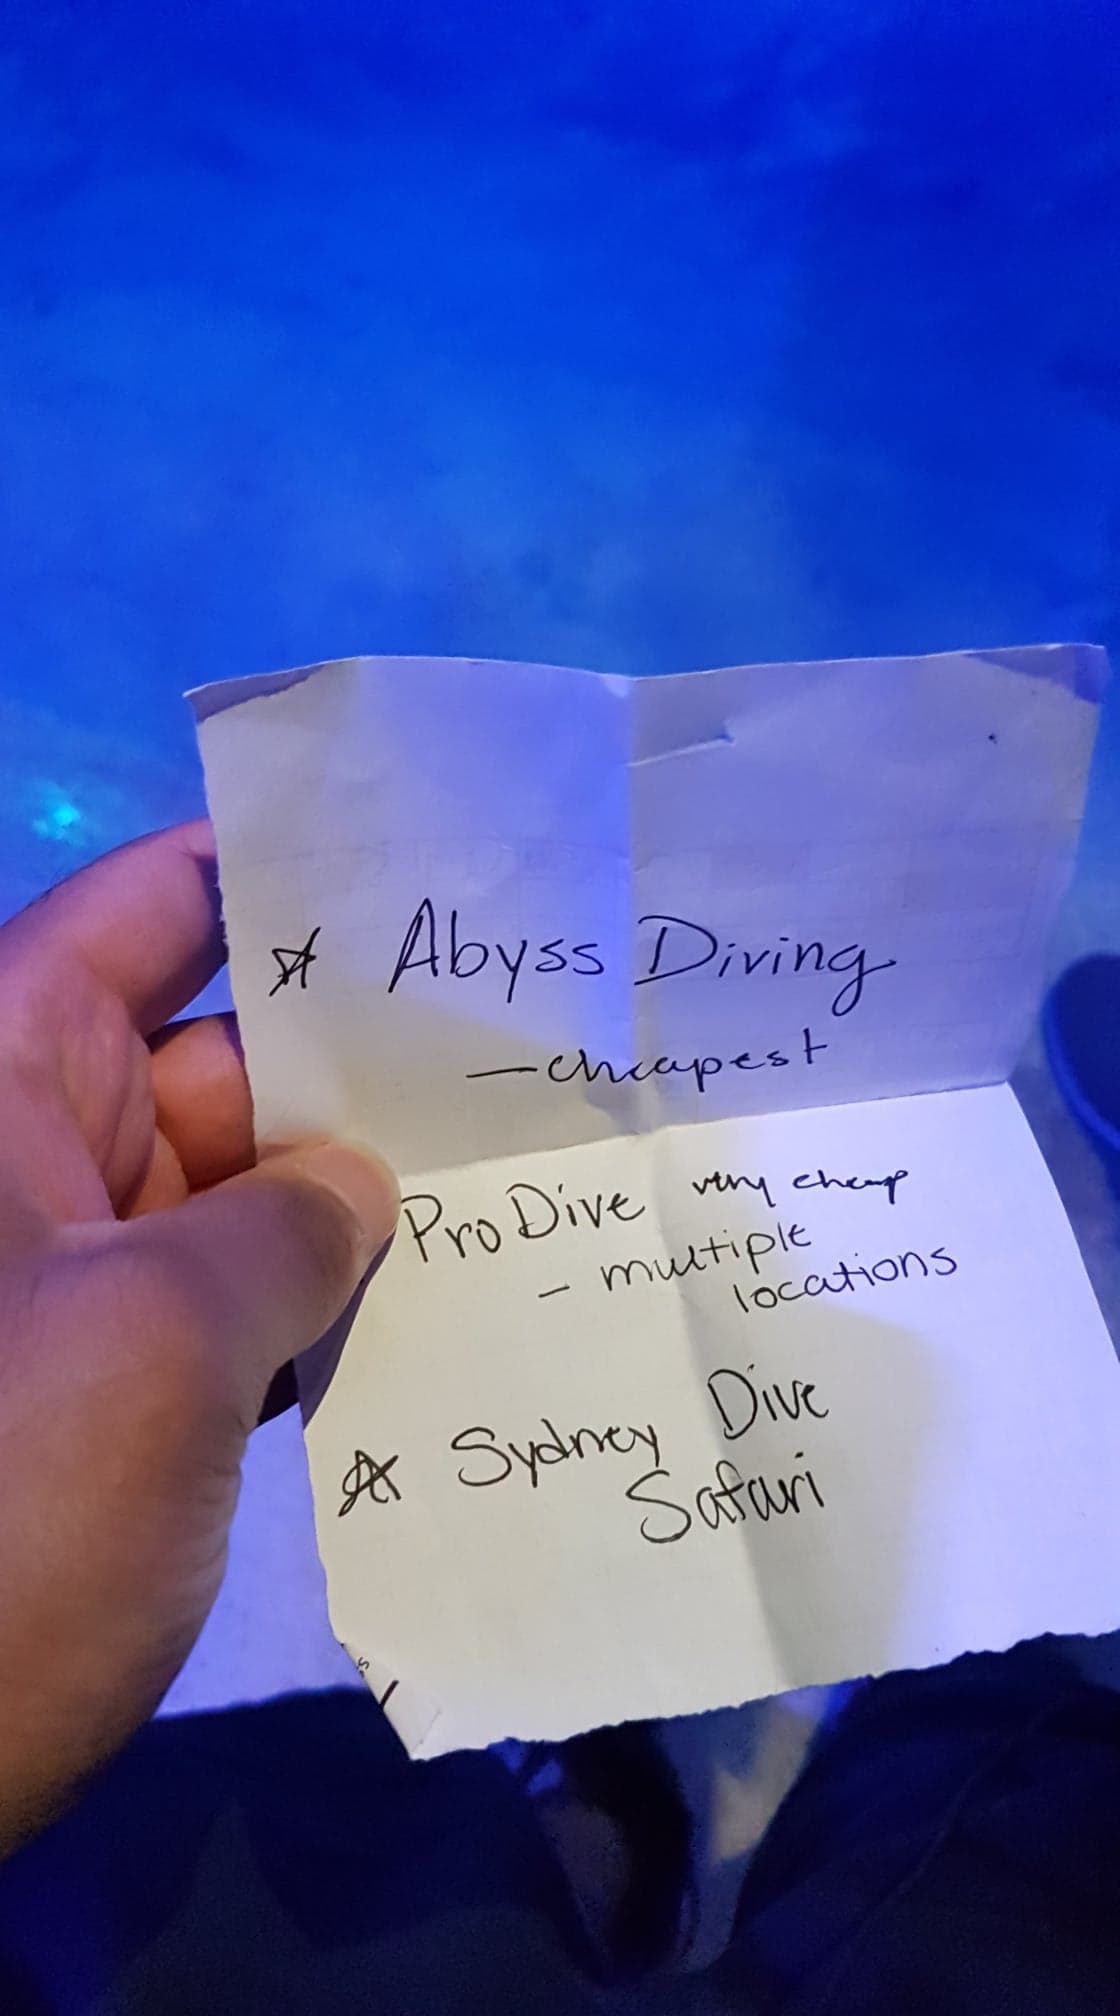 ☆ Abyss Diving
- cheapest
Pro Dive very cheap
- multiple
locations
☆ Sydney Dive
Safari